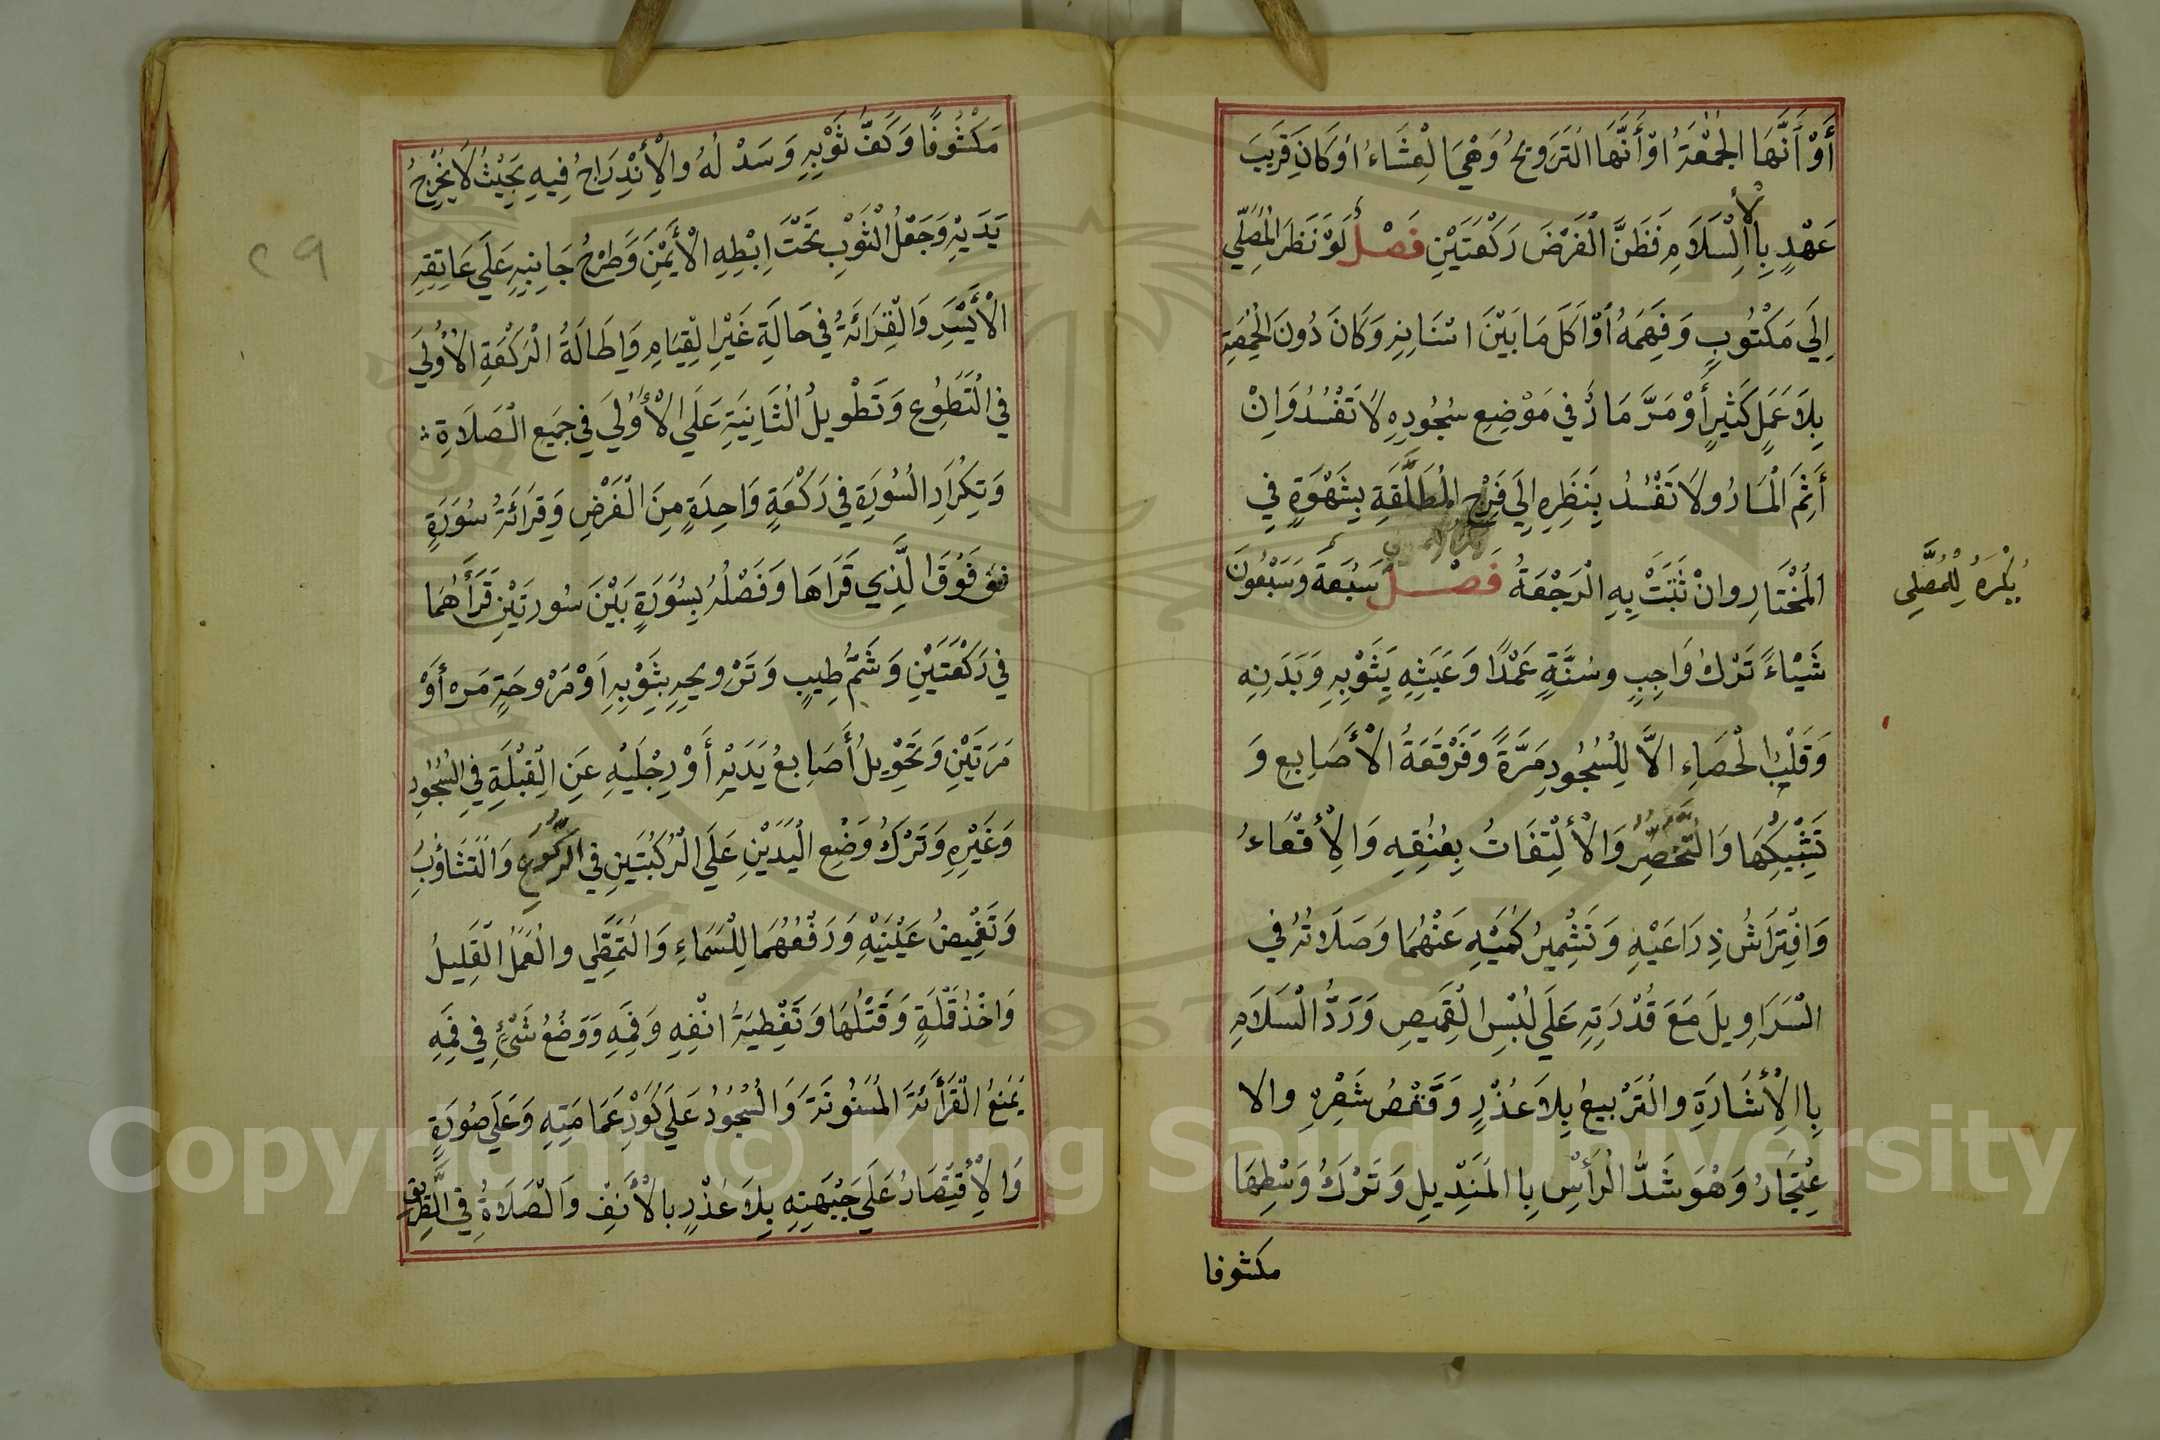 أَوْ أَنَّهَا الجُمُعَةُ اوْ أَنَّهَا التَرَوِيحُ وَهْيَ الْعِشَاءُ اوْ كَانَ قَرِيبَ
عَهْدٍ بِالْاِسْلَامِ فَظَنَّ الْفَرْضَ رَكْعَتَيْنِ فَصْلٌ لَوْ نَظَرَ الْمُصَلِّي
اِلَي مَكْتُوبٍ وَفَهِمَهُ أَوْ اَكَلَ مَا بَيْنَ اسْنَانِهِ وَكَانَ دُونَ الْحِمَّصَةِ
بِلَا عَمَلٍ كَثِيرٍ أَوْ مَرَّ مَارٌّ في مَوْضِعِ سُجُودِهِ لَا تَفْسُدُ وَاِنْ
أَثِمَ الْمَارُ ولَا تَفْسُدُ بِنَظَرِهِ اِلَي فَرْجِ المُطَلَّقَةِ بِشَهْوَةٍ فِي
الْمُخْتَارِ وانْ ثَبَتَتْ بِهِ الْرَجْعَةُ فَصْلٌ سَبْعَة وَسَبْعُونَ
يُكْرَهُ لِلْمُصَلِّي
شَيْاءً تَرْكُ وَاجِبٍ وسُنَّةٍ عَمْدًا وَعَبَثِهِ بِثَوْبِهِ وَبَدَنِهِ
وَقَلْبُ الْحَصَاءِ الاَّ لِلسُجُودِ مَرَّةً وَفَرْقَعَةُ الْأَصَابِعِ وَ
تَشْبِيكِهَا وَالْتَّخَصُّرُ وَالْأِلْتِفَاتُ بِعُنُقِهِ وَالْأِقْعَاءُ
وَافْتِرَاشُ ذِرَاعَيْهِ وَتَشْمِيرُ كُمَيْهِ عَنْهُمَا وَصَلَاتُهُ في
الْسَرَاوِيلَ مَعَ قُدْرَتِهِ عَلَي لُبْسِ الْقَمِيصِ وَرَدُّ الْسَلَامِ
بِاالْأِشَارَةِ والْتَرْبِيعُ بِلَا عُذْرٍ وَعَقْصُ شَعْرِهِ والا
عْتِجَارُ وَهُوَ شَدُّ الْرَأْسِ بِاالْمَنْدِيلِ وَتَرْكُ وَسْطِهَا
مكشوفا
مَكْشُوفًا وَكَفُّ ثَوْبِهِ وَسَدْلُهُ والْأِنْدِرَاجُ فِيهِ بِحَيْثُ لَا يُخْرِجُ
يَدَيْهِ وَجَعْلُ الْثَوْبِ تَحْتَ اِبْطِهِ الْأَيْمَنِ وَطَرْحُ جَانِبَيْهِ عَلَي عَاتِقِهِ
الْأَيْسَرِ وَالْقِرَائَةُ في حَالَةِ غَيْرِ الْقِيَامِ وَاِطَالَةُ الْرَكْعَةِ الْأُولَي
في الْتَطَوُعِ وَتَطْوِيلُ الْثَانِيَةِ عَلَي الْأُولَي في جَمِيعِ الْصَلَاةِ
وَتِكْرَارِ السُورَةِ في رَكْعَةٍ وَاحِدَةٍ مِنَ الْفَرْضِ وَقِرَائَةُ سُورَةٍ
فَوْقَ الَّذِي قَرَاهَا وَفَصْلُهُ بِسُورَةٍ بَيْنَ سُورتَيْنِ قَرَأَهُمَا
في رَكْعَتَيْنِ وَشَمُّ طِيبٍ وَتَرْوِيحِهِ بِثَوْبِهِ اَوْ مَرْوحَةٍ مَره أَوْ
مَرَتَيْنِ وَتَحْوِيلُ أَصَابِعُ يَدَيْهِ أَوْ رِجْلَيْهِ عَنِ الْقِبْلَةِ فِي السُّجُودِ
وَغَيْرِهِ وَتَرْكُ وَضْعِ الْيَدَيْنِ عَلَي الْرُكْبَتَيْنِ في الْرُّكُوعِ وَالْتَثَاؤُبُ
وَتَغْمِيضُ عَيْنَيْهِ وَرَفْعُهُمَا لِلْسَمَاءِ وَالْتَمَطِّي والْعَمَلُ الْقَلِيلُ
وَاخْذُ قَمْلَةٍ وَقَتْلُهَا وَتَغْطِيَةُ انْفِهِ وَفَمِهِ وَوَضْعُ شَيْئٍ في فَمِهِ
يَمْنَعُ الْقَرَأَئَةَ الْمَسْنُونَةَ وَالْسُجُودُ عَلَي كَوْرِ عَمَامَتِهِ وَعَلَي صُورَةٍ
وَالْأِقْتِصَارُ عَلَي جَبْهَتِهِ بِلَا عُذْرٍ بالْأَنْفِ وَالْصَلَاةُ في الْطَّرِيقِ
٢٩
Copyright © King Saud University
1957